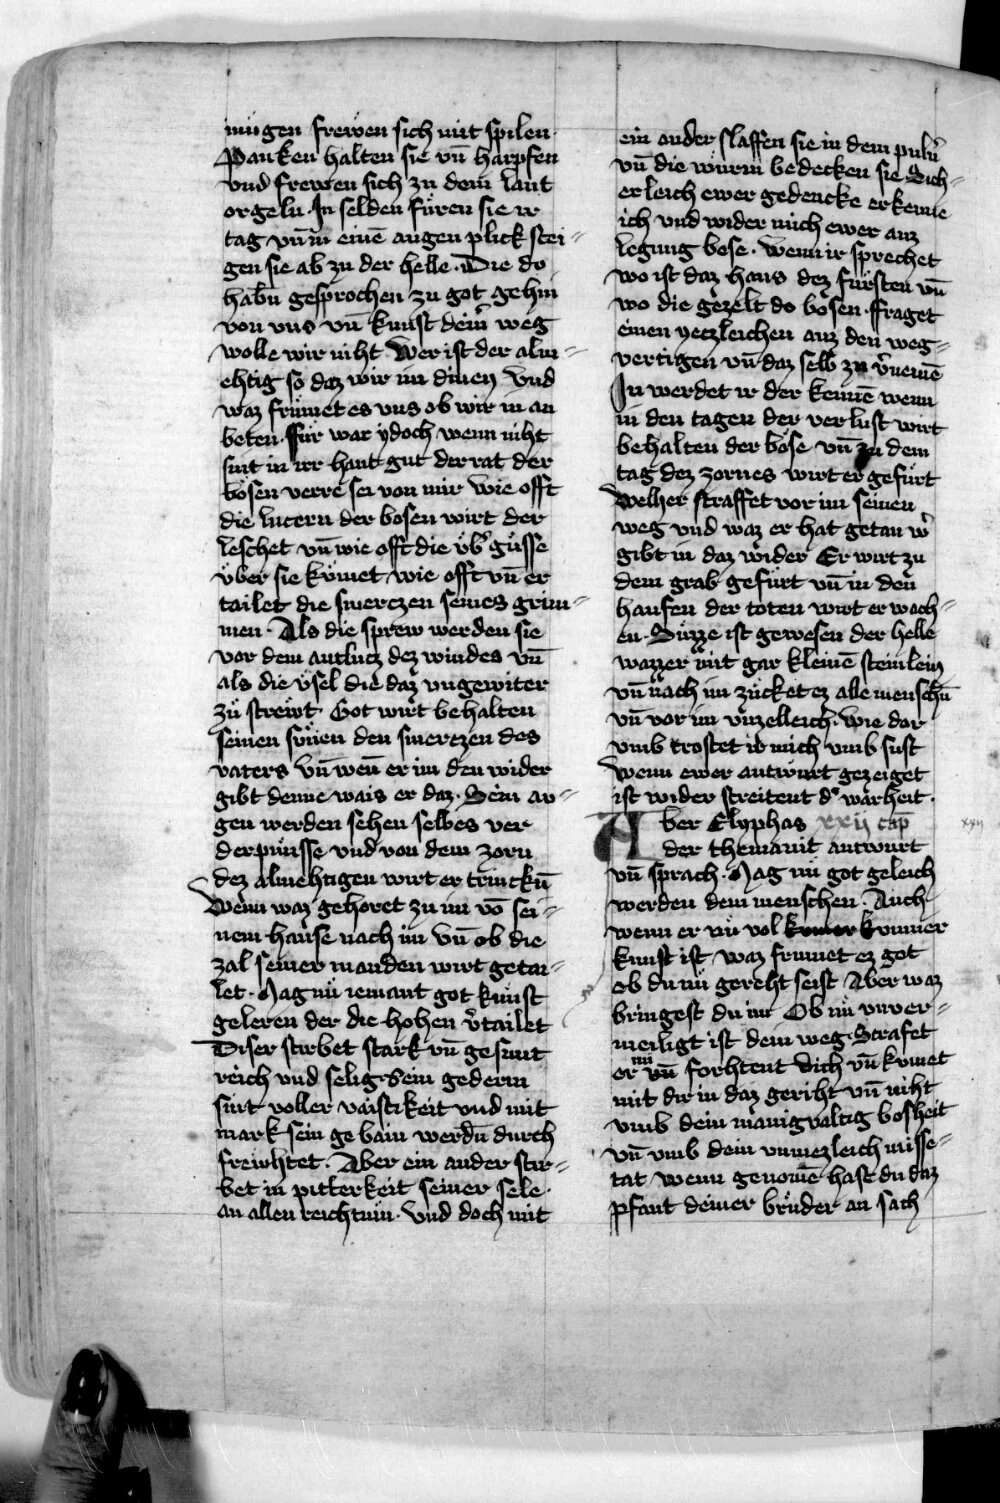 mügen frewen sich mit spilen·
Pauken halten sie vn̄ harpfen
vnd frewen sich zu dem laut
orgeln· In selden füren sie ir
tag vn̄ in einē augen plick stei-
gen sie ab zu der helle· Die do
habn̄ gesprochen zu got gehin
von vns vn̄ kunst deinr̄ weg
wolle wir niht Wer ist der alm-
ehtig so daz wir im dinen Vnd
waz frümet es vns ob wir in an
beten· Für war ydoch wenn niht
sint in irr hant gut der rat der
bösen verre sei von mir Wie offt
die lucern der bosen wirt der
leschet vn̄ wie offt die vb̾güsse
über sie kümet wie offt vn̄ er
tailet die smerczen seines grim-
men· Als die sprew werden sie
vor dem antlucz dez windes vn̄
als die üsel die daz vngewiter
zü strewt· Got wirt behalten
seinen sünen den smerczen des
vaters Vn̄ wen̄ er im den wider
gibt denne wais er daz· Sein au-
gen werden sehen selbes ver
derpnüsse vnd von dem zorn
dez almehtigen wirt er trinckn̄
Wenn waz gehoret zu im vō sei-
nem hause nach im Vn̄ ob die
zal seiner manden wirt getai-
let· Mag nü iemant got kunst
geleren der die hohen v̾tailet
Diser stirbet stark vn̄ gesunt
reich vnd selig· Sein gederm
sint voller vaistikeit vnd mit
mark sein gebain werdn̄ durch
freihtet· Aber ein ander stir-
bet in pitterkeit seiner sele·
an allen reichtum· Vnd doch mit
ein ander slaffen sie in dem pulū
vn̄ die würm bedecken sie Sich-
erleich ewer gedencke erkenne
ich vnd wider mich ewer auz
legung bose· Wenn ir sprechet
wo ist daz haus dez fürsten vn̄
wo die gezelt do bösen· Fraget
einen yeczleichen auz den weg-
vertigen vn̄ daz selb zu v̾nemē
In werdet ir der kennē wenn
in den tagen der verlust wirt
behalten der böse vn̄ zu dem
tag dez zornes wirt er gefürt
Welher straffet vor im seinen
weg vnd waz er hat getan w̾
gibt in daz wider Er wirt zu
dem grab gefürt vn̄ in den
haufen der toten wirt er wach-
en· Süzze ist gewesen der helle
wazzer mit gar kleinē steinlein
vn̄ nach im zücket ez alle menschn̄
vn̄ vor im vnzelleich· Wie dar
vmb trostet ir mich vmb sust
Wenn ewer antwurt gezeiget
ist wider streitent d̾ warheit·
Aber Elyphas xxij cap̄
der themanit antwurt
vn̄ sprach· Mag nü got geleich
werden dem menschen· Auch
wenn er nü vol kumer
kunst ist waz frumet ez got
ob du nü gereht seist Aber waz
bringest du im Ob nü vnver-
meiligt ist dein weg· Strafet
er nü vn̄ forhtent dich vn̄ kvmet
mit dir in daz geriht vn̄ niht
vmb dein manigvaltig bosheit
vn̄ vmb dein vnmezleich misse-
tat wenn genomē hast du daz
pfant deiner brüder an sach
xxij